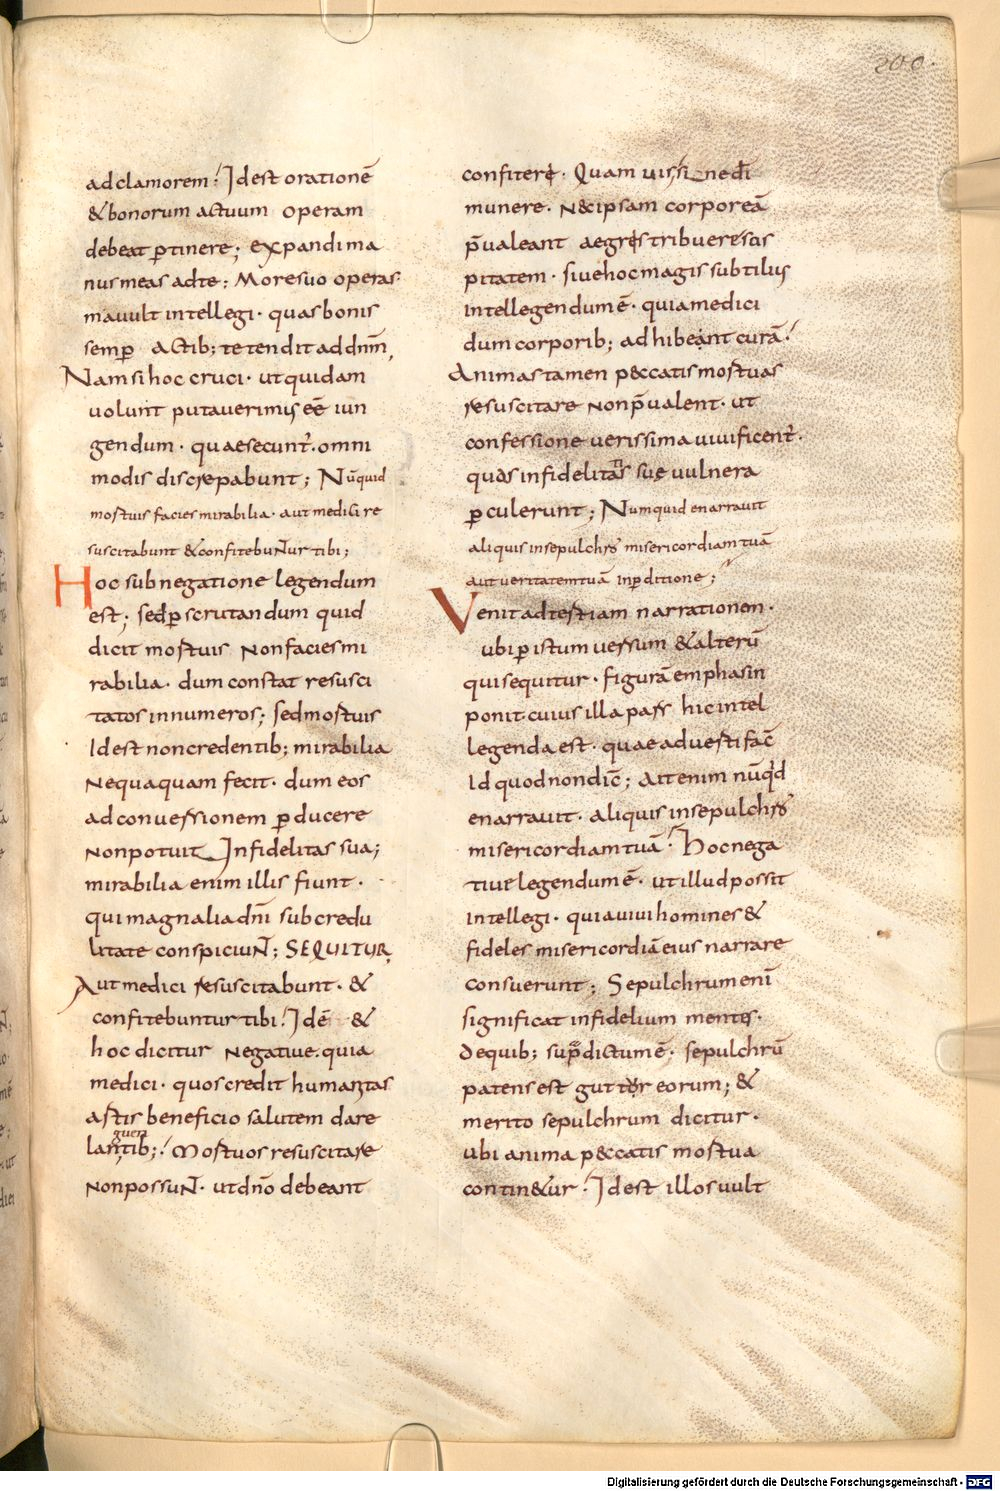 200.
ad clamorem! Idest orationē
& bonorum actuum operam
debeat ꝑtinere; expandi ma
nus meas ad te: More suo operas
mauult intellegi · quas bonis
semꝑ actib; tetendit ad dnm̄,
Nam si hoc cruci · ut quidam
uolunt putauerimus eē iun
gendum · quae secunt̉ · omni
modis discrepabunt; Nūquid
mortuis facies mirabilia · aut medici re
suscitabunt & confitebuntur tibi;
Hoc sub negatione legendum
est; sed ꝑscrutandum quid
dicit mortuis non facies mi
rabilia · dum constat resusci
tatos innumeros; sed mortuis
Idest non credentib; mirabilia
nequaquam fecit · dum eos
ad conuersionem ꝑducere
non potuit Infidelitas sua;
mirabilia enim illis fiunt ·
qui magnalia dn̄i sub credu
litate conspiciunt; SEQUITUR,
Aut medici resuscitabunt · &
confitebuntur tibi! Idē &
hoc dicitur negatiue. quia
medici · quos credit humanitas
artis beneficio salutem dare
guen
lantib;! Mortuos resuscitare
non possunt · ut dn̄o debeant
confiteri · Quam uis si ne di
munere · nec ipsam corporeā
p̄ualeant aegris tribuere sos
pitatem · siue hoc magis subtilius
intellegendum ē · quia medici
dum corporib; adhibeant curā!
Animas tamen peccatis mortuas
resuscitare non p̄ualent · ut
confessione uerissima uiuificent̉ ·
quas infidelitatis suę uulnera
ꝑculerunt; Numquid enarrauit
aliquis in sepulchris misericordiam tuā
aut ueritatem tuā in ꝑditione;
Venit ad tertiam narrationem ·
ubi ꝑ istum uersum & alterū
qui sequitur · figurā emphasin
ponit cuius illa pars hic intel
legenda est · quae aduerti fac̄
Id quod non dic̄; Ait enim nūqd
enarrauit · aliquis in sepulchris
misericordiam tuā! Hoc nega
tiue legendum ē · ut illud possit
intellegi · quia uiui homines &
fideles misericordiā eius narrare
consuerunt; Sepulchrum enī
significat infidelium mentes ·
de quib; supra dictum ē · sepulchrū
patens est guttor eorum; &
merito sepulchrum dicitur ·
ubi anima peccatis mortua
contin&ur · Idest illos uult
Digitalisierung gefördert durch die Deutsche Forschungsgemeinschaft · DFG